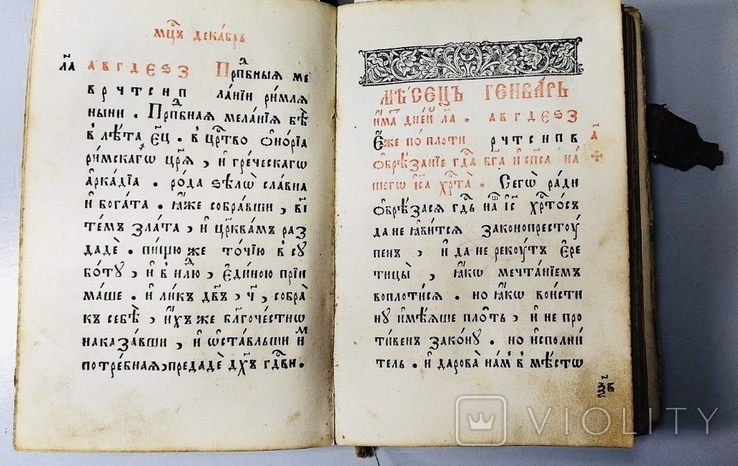 мцъ декабрь
ла а в г д е ѕ з Прпбныя ме
в р ч т с н п ланіи римля
ныни . Прпбная мелания бѣ
в лѣта ец . в црство онорїа
римскагѡ црѧ , и греческагѡ
аркадїа . рода ѕѣлѡ славна
и богата . ꙗже собравши , вї
тем злата , и црквам раз
даде . пищу же точїю в су
боту , и в нлю , единою прїи
маше . и лик двъ , ч , собра
к себѣ , ихже блгочестнѡ
наказавши , и ѡставльши и
потребная , предаде дхъ гдви .
мѣсецъ генварь
има дней ла . а в г д е ѕ з
Еже по плоти р ч т с н п в а
обрѣзание гда бга и спса на
шего іса хрта . Сегѡ ради
обрѣзася гдь наш іс хртосъ
да не ꙗвится законопрестоу
пен , и да не рекоут ере
тицы , ꙗкѡ мечтанїем
воплотися . но ꙗкѡ воисти
ну имѣяше плоть , и не про
тивен закону . но исполни
тель . и дарова нам в мѣстѡ
VIOLITY